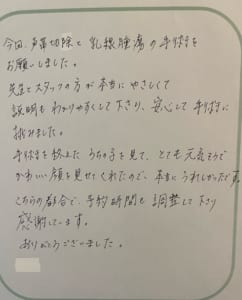 今回、声帯切除と乳腺腫瘍の手術を
お願いしました。
先生とスタッフの方が本当にやさしくて
説明もわかりやすくして下さり、安心して手術に
挑みました。
手術を終えたうちの子を見て、とても元気そうで
かわいい顔を見せてくれたので、本当にうれしかったです。
こちらの都合で、予約時間も調整して下さり
感謝しています。
ありがとうございました。